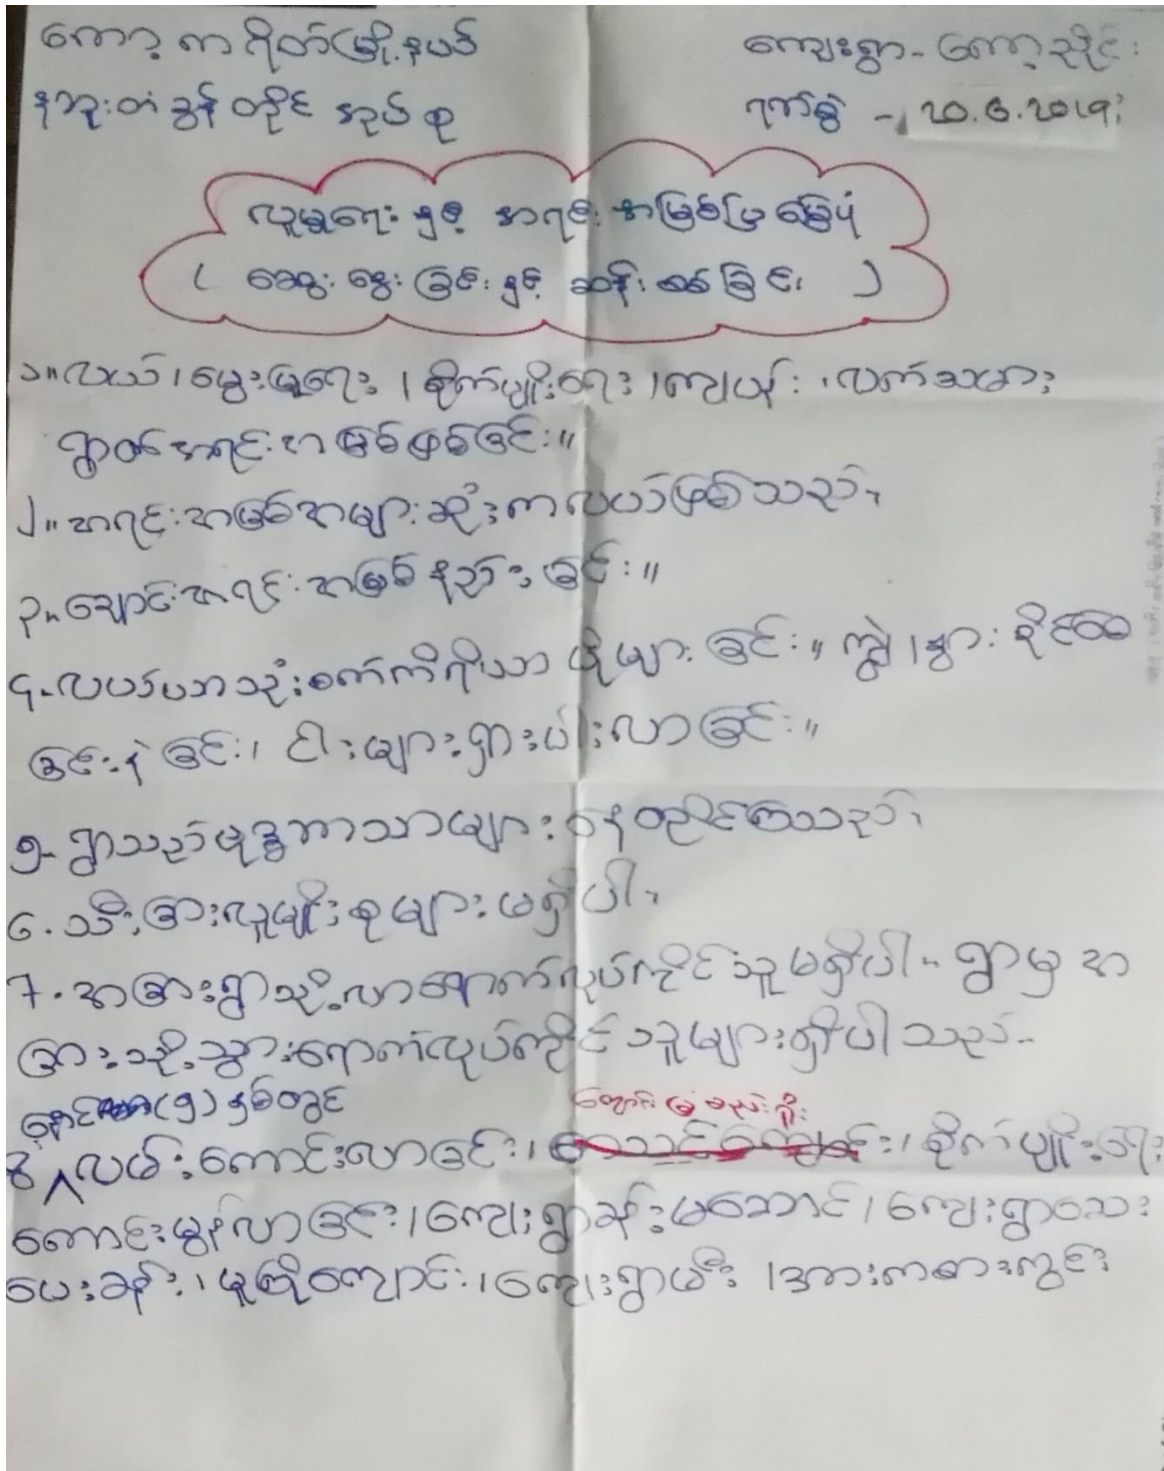 ကော့ကရိတ်မြို့နယ် ကျေးရွာ - ကော့ညှိုင်း
နဘူးတံခွန်တိုင် အုပ်စု ရက်စွဲ - ၂၀.၆.၂၀၁၉
လူမှုရေးနှင့် အရင်းအမြစ်ပြမြေပုံ
( ဆွေးနွေးခြင်းနှင့် ဆန်းစစ်ခြင်း )
၁။ လယ်၊ မွေးမြူရေး၊ စိုက်ပျိုးရေး၊ ကျပန်း၊ လက်သမား
ရွာ၏အရင်းအမြစ်ဖြစ်ခြင်း။
၂။ အရင်းအမြစ်အများဆုံးက လယ်ဖြစ်သည်၊
၃။ ချောင်းအရင်းအမြစ်နည်းခြင်း။
၄- လယ်ယာသုံးစက်ကိရိယာ ပိုများခြင်း။ ကျွဲ၊ နွား ခိုင်းစေ
ခြင်းနဲခြင်း၊ ငါးများရှားပါးလာခြင်း။
၅- ရွာသည်ဗုဒ္ဓဘာသာများနေထိုင်ကြသည်၊
၆. သီးခြားလူမျိုးစုများမရှိပါ၊
7. အခြားရွာသို့လာရောက်လုပ်ကိုင်သူမရှိပါ- ရွာမှ အ
ခြားသို့သွားရောက်လုပ်ကိုင်သူများရှိပါသည်-
နှောင်(၅)နှစ်တွင်
8 ^ လမ်းကောင်းလာခြင်း၊ စိုက်ပျိုးရေး
ကောင်းမွန်လာခြင်း၊ ကျေးရွာခန်းမဆောင်၊ ကျေးရွာဆေး
ပေးခန်း၊ မူကြိုကျောင်း၊ ကျေးရွာမီး၊ အားကစားကွင်း